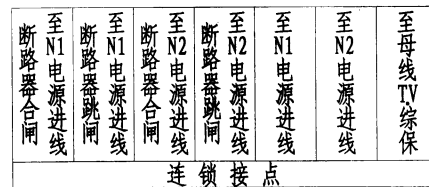 至N1电源进线
断路器合闸
至N1电源进线
断路器跳闸
至N2电源进线
断路器合闸
至N2电源进线
断路器跳闸
至N1电源进线
至N2电源进线
至母线TV.综保
连锁接点